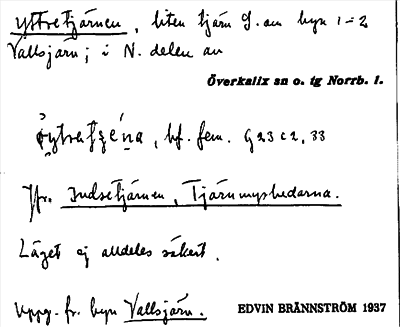 Yttretjärnen, liten tjärn S. om byn 1-2
Vallsjärn; i N. delen av
Överkalix sn o. tg Norrb. l.
bf. fem. G 23 c 2, 33
Jfr. Indsetjärnen, Tjärnmyshedarna.
Läget ej alldeles säkert.
Uppg. fr. byn Vallsjärn.
EDVIN BRÄNNSTRÖM 1937